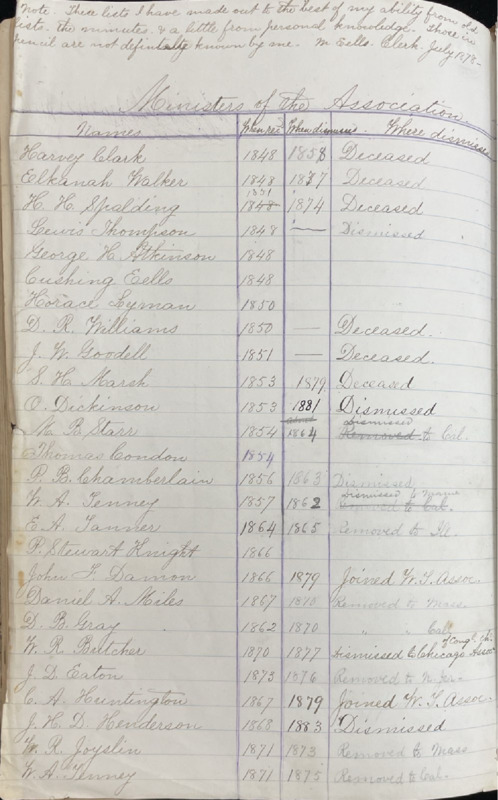 Note. These lists I have made out to the best of my ability from old
lists. the minutes. & a little from personal knowledge. Those in
pencil are not definitely known by me. M Eells. Clerk. July 1878.
Ministers of the Association.
Names When rec'd When dismiss. Where dismissed
Harvey Clark 1848 1858 Deceased
Elkanah Walker 1848 1877 Deceased
1851
H. H. Spalding 1848 1874 Deceased
Lewis Thompson 1848 — Dismissed
George H. Atkinson 1848
Cushing Eells 1848
Horace Lyman 1850
D. R. Williams 1850 — Deceased.
J. W. Goodell 1851 — Deceased.
S. H. Marsh 1853 1879 Deceased
O. Dickinson 1853 1881 Dismissed
Dismissed
M. B. Starr 1854 1864 Removed to Cal.
Thomas Condon 1854
P. B. Chamberlain 1856 1863 Dismissed
Dismissed to
W. A. Tenney 1857 1862 Removed to Cal.
E. A. Tanner 1864 1865 Removed to Ill.
P. Stewart Knight 1866
John F. Damon 1866 1879 Joined W. T. Assoc.
Daniel A. Miles 1867 Removed to Mass.
D. B. Gray 1862 1870 " " Cal.
of Congl. Chs.
W. R. Butcher 1870 1877 Dismissed to Chicago Assoc
J. D. Eaton 1873 1876 Removed to
C. A. Huntington 1867 1879 Joined W. T. Assoc.
J. H. D. Henderson 1868 1883 Dismissed
W. R. Joyslin 1871 1873 Removed to Mass
W. A. Tenney 1871 1875 Removed to Cal.